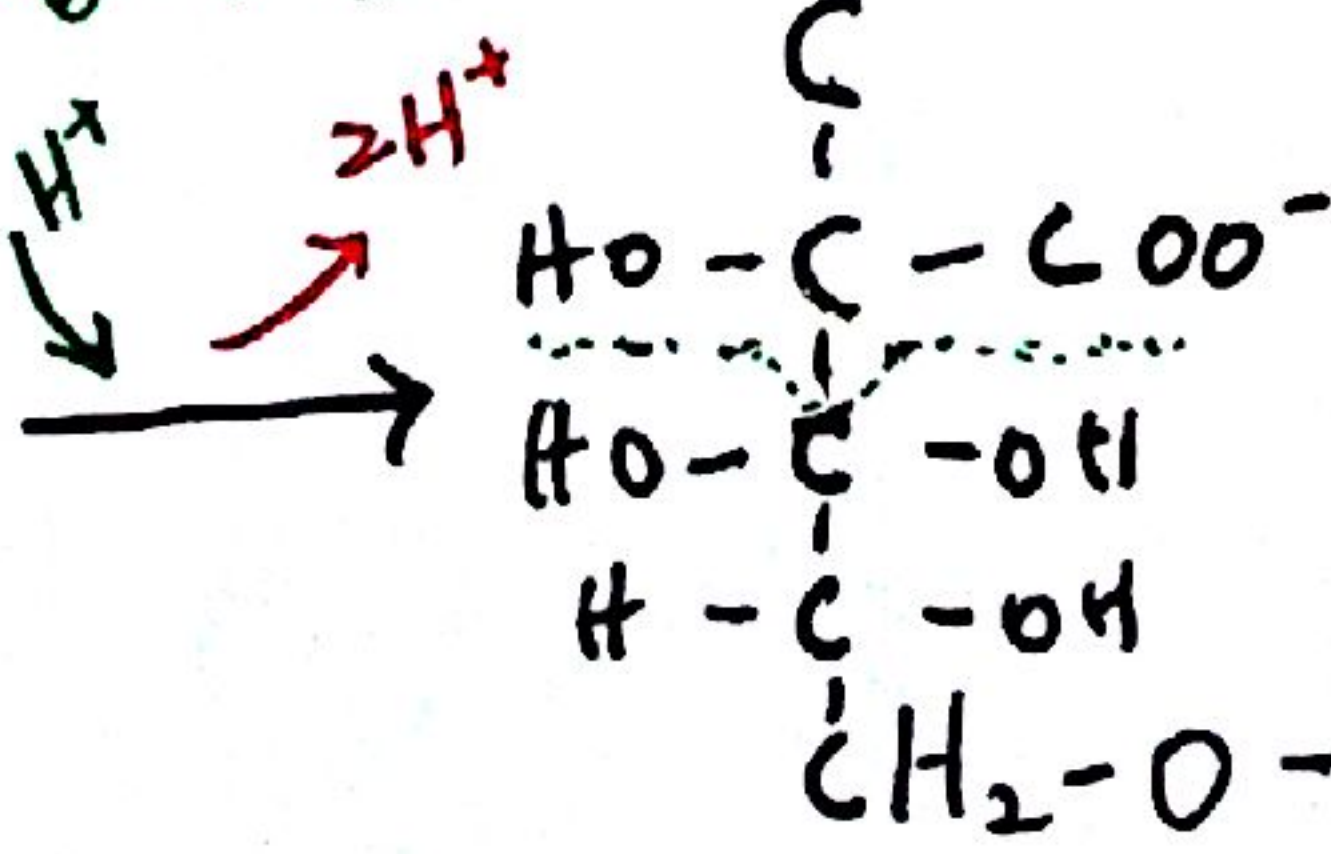 H⁺
2H⁺
C
HO - C - COO⁻
HO - C - OH
H - C - OH
CH₂ - O -